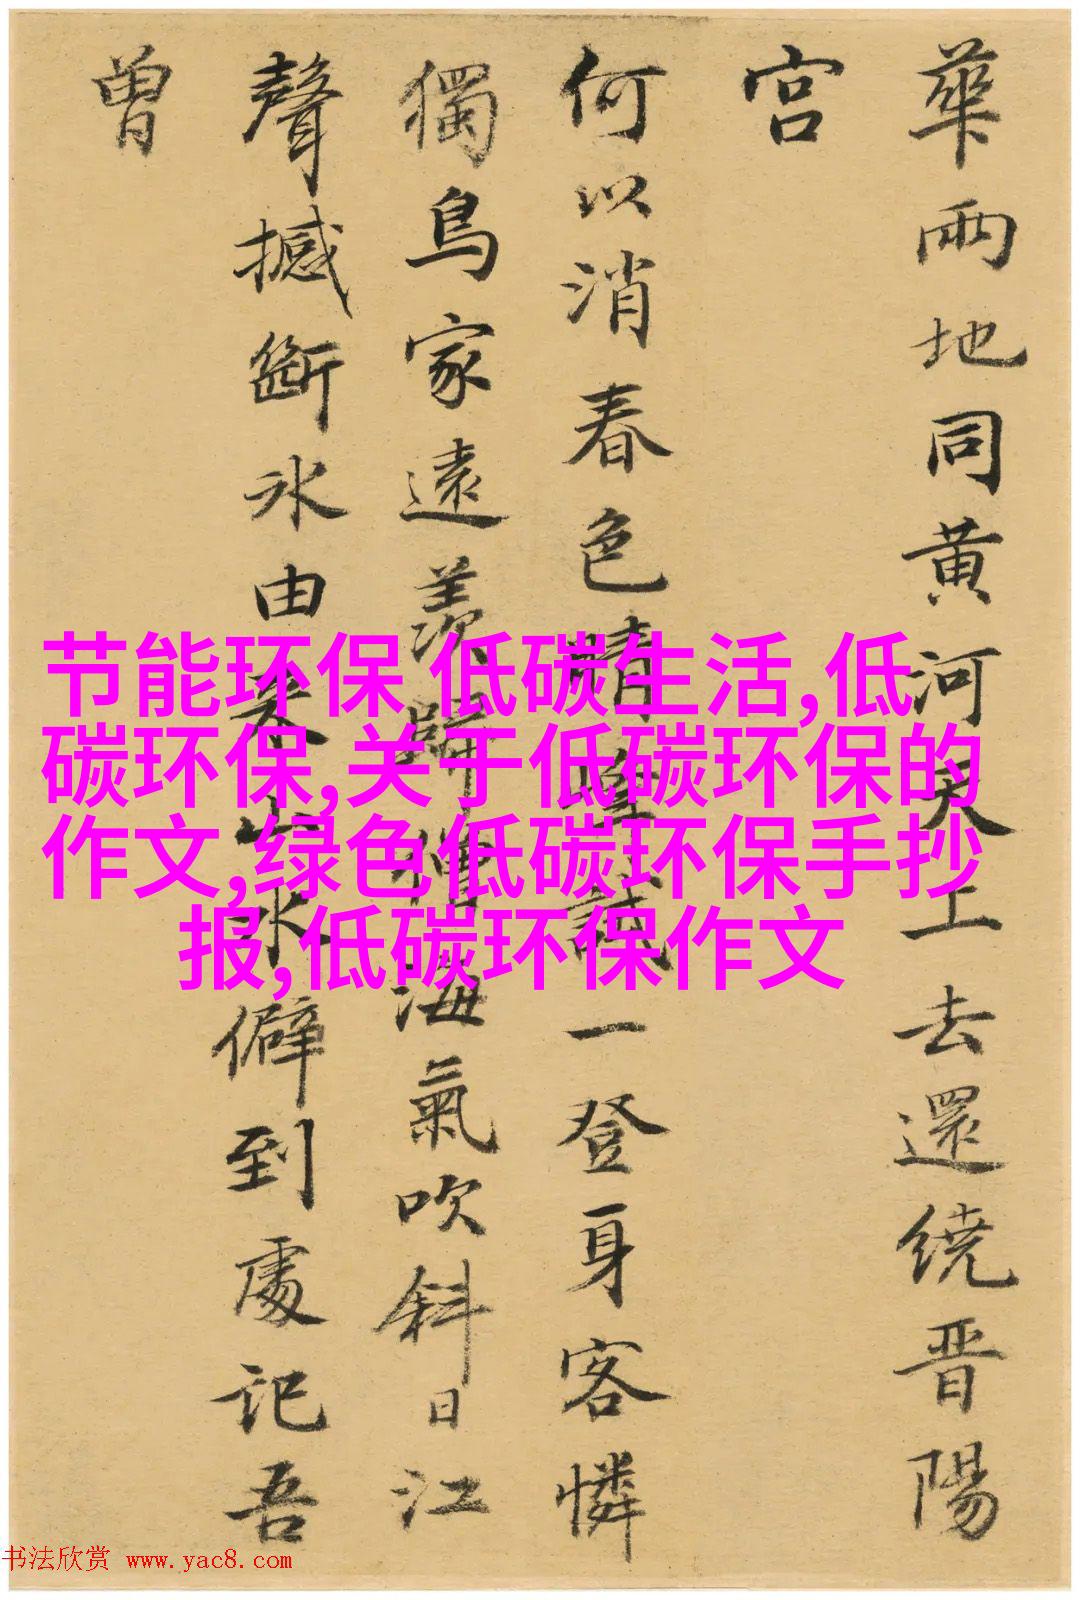 華兩地同黄河天上去還繞晋陽
宫
何以消春色晴皐試一登身客憐
獨鳥家遠羨歸僧海氣吹斜日江
聲撼斷冰由来山水僻到處記吾
曾
节能环保,低碳生活,低
碳环保,关于低碳环保的
作文,绿色低碳环保手抄
报,低碳环保作文
书法欣赏 www.yac8.com